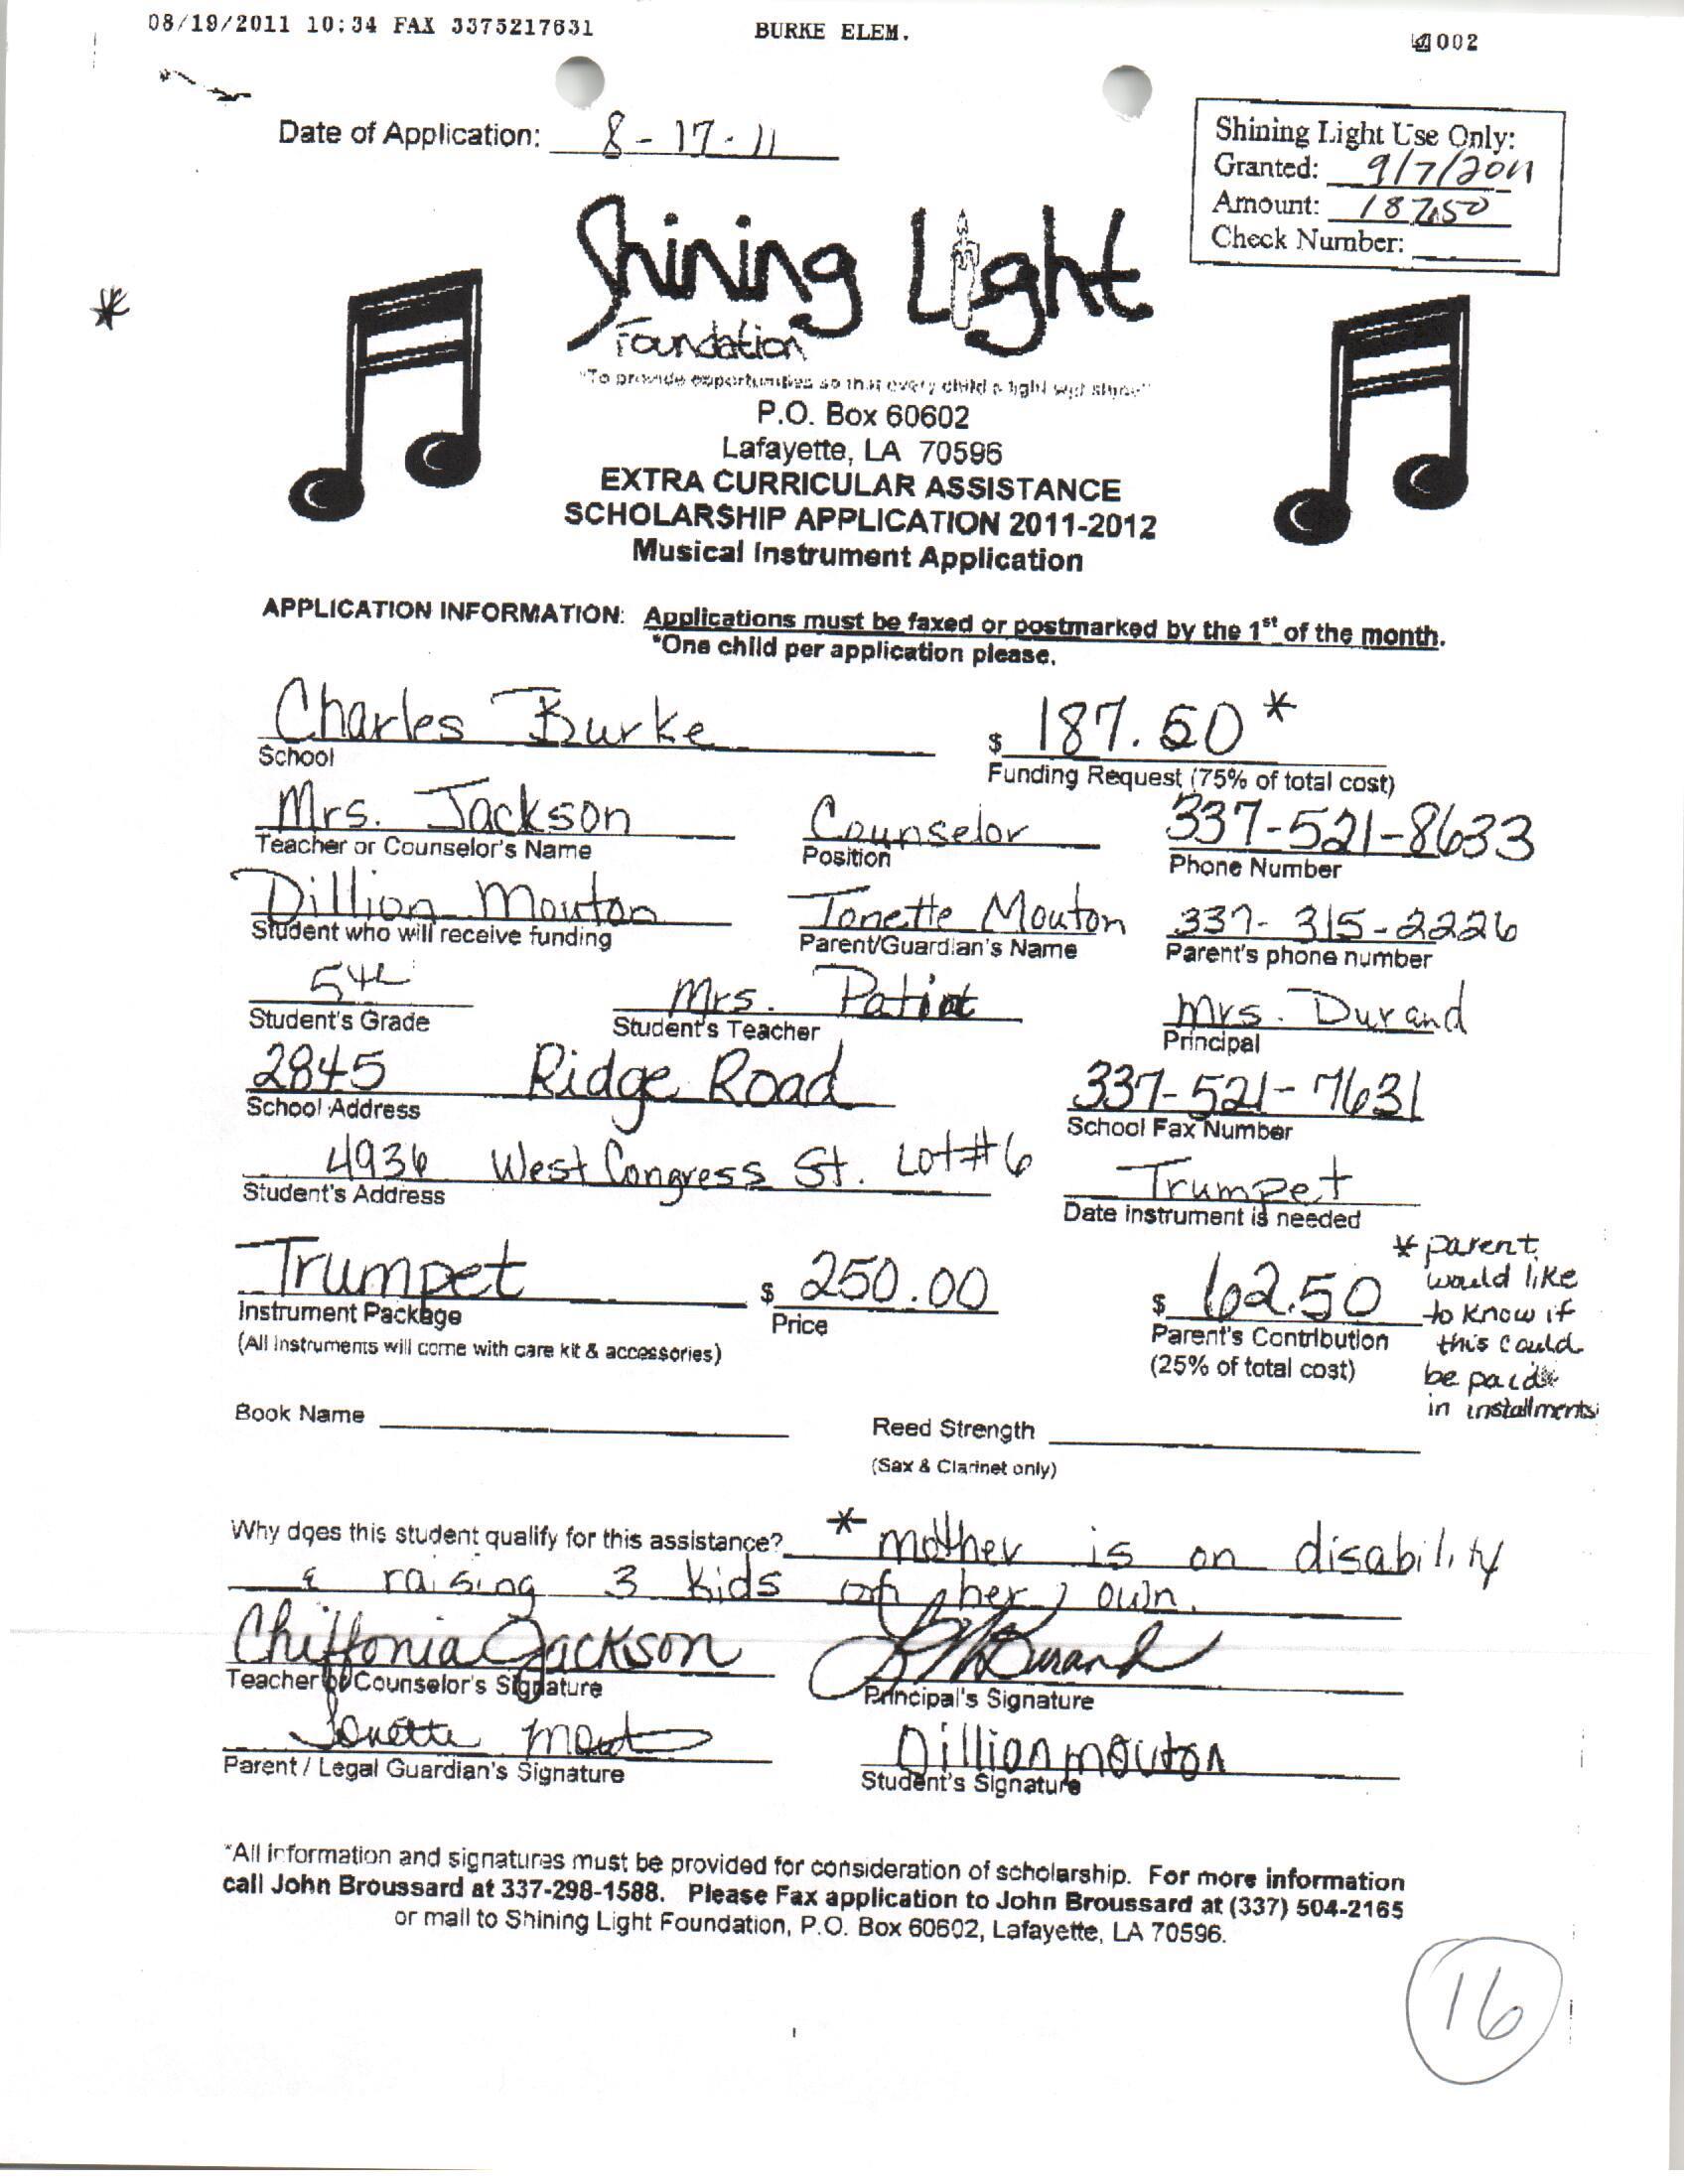 08/19/2011 10:34 FAX 3375217631 BURKE ELEM. 002
Date of Application: 8-17-11
Shining Light Use Only:
Granted: 9/7/2011
Amount: 187.50
Check Number:
Shining Light
Foundation
"To provide opportunities so that every child's light will shine"
P.O. Box 60602
Lafayette, LA 70596
EXTRA CURRICULAR ASSISTANCE
SCHOLARSHIP APPLICATION 2011-2012
Musical Instrument Application
APPLICATION INFORMATION: Applications must be faxed or postmarked by the 1st of the month.
*One child per application please.
Charles Burke $ 187.50*
School Funding Request (75% of total cost)
Mrs. Jackson Counselor 337-521-8633
Teacher or Counselor's Name Position Phone Number
Dillion Mouton Tonette Mouton 337-315-2226
Student who will receive funding Parent/Guardian's Name Parent's phone number
5th Mrs. Mrs. Durand
Student's Grade Student's Teacher Principal
2845 Ridge Road 337-521-7631
School Address School Fax Number
4936 West Congress St. Lot#6 Trumpet
Student's Address Date instrument is needed
Trumpet $ 250.00 $ 62.50
Instrument Package Price Parent's Contribution
(All instruments will come with care kit & accessories) (25% of total cost)
* parent
would like
to know if
this could
be paid
in installments
Book Name Reed Strength
(Sax & Clarinet only)
Why does this student qualify for this assistance? * mother is on disability
& raising 3 kids on her own.
Chiffonia Jackson Durand
Teacher or Counselor's Signature Principal's Signature
Tonette Mout Dillion mouton
Parent / Legal Guardian's Signature Student's Signature
*All information and signatures must be provided for consideration of scholarship. For more information
call John Broussard at 337-298-1588. Please Fax application to John Broussard at (337) 504-2165
or mail to Shining Light Foundation, P.O. Box 60602, Lafayette, LA 70596.
16